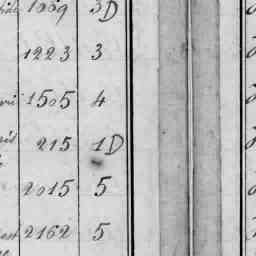 1009 3D
1223 3
1505 4
215 1D
2015 5
2162 5